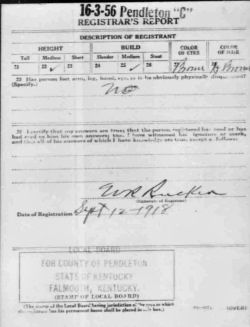 16-3-56 Pendleton "C"
REGISTRAR'S REPORT
DESCRIPTION OF REGISTRANT
HEIGHT BUILD COLOR OF EYES COLOR OF HAIR
Tall Medium Short Slender Medium Stout
21 22 ✓ 23 24 25 ✓ 26 27 Brown 28 Brown
29 Has person lost arm, leg, hand, eye, or is he obviously physically
(Specify.)
No
30 I certify that my answers are true; that the person registered has read or has
had read to him his own answers; that I have witnessed his signature or mark,
and that all of his answers of which I have knowledge are true, except as follows:
W R Rucker
(Signature of Registrar)
Date of Registration Sept 12-1918
LOCAL BOARD
FOR COUNTY OF PENDLETON
STATE OF KENTUCKY
FALMOUTH, KENTUCKY.
(STAMP OF LOCAL BOARD)
(The stamp of the Local Board having jurisdiction of the area in which
the registrant has his permanent home shall be placed in this box.)